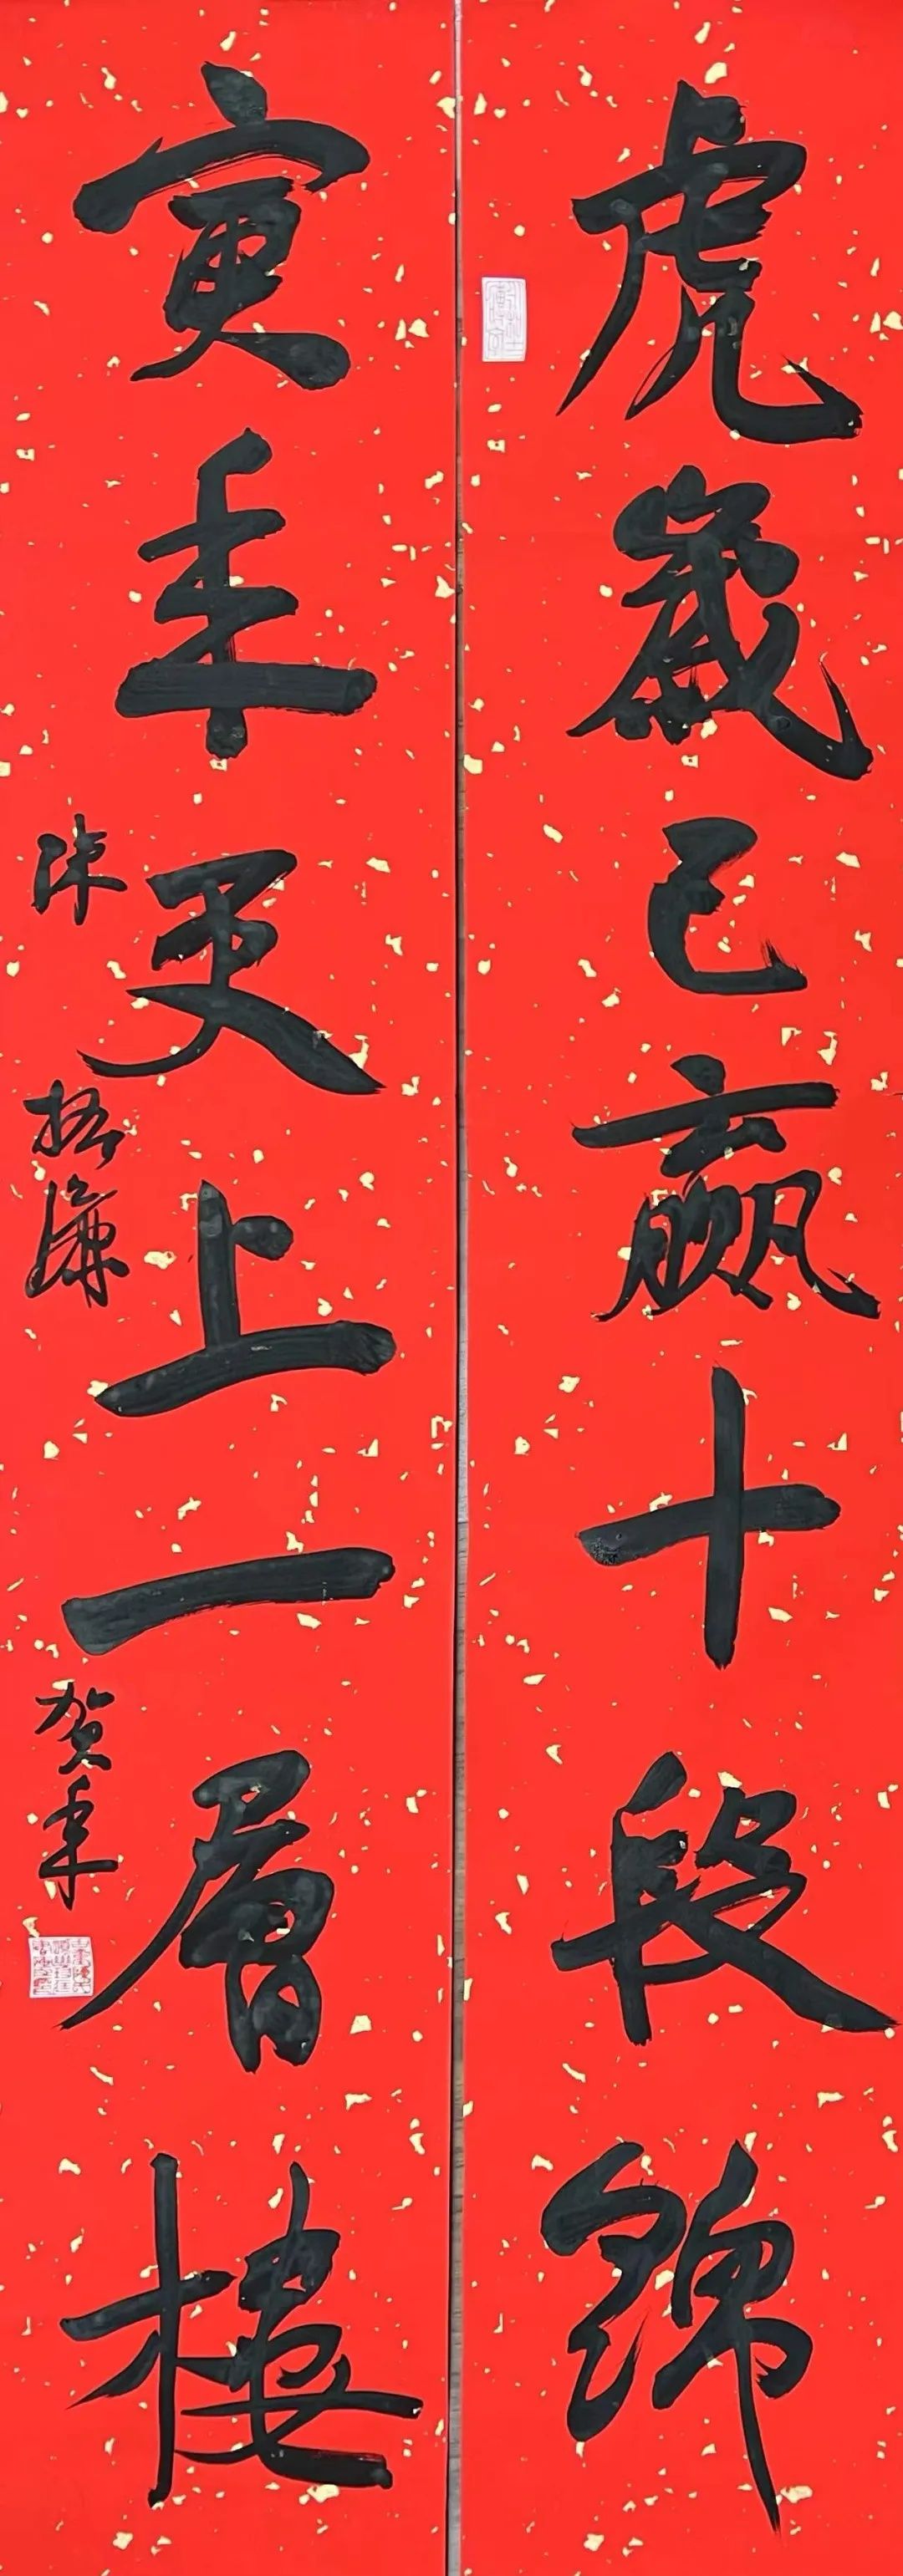 虎歲已贏十段錦
寅年更上一層樓
陳振濂
賀年